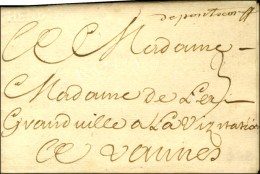 de pontcroix
A Madame
Madame de Ker
Grandville a La Visitation
A vannes